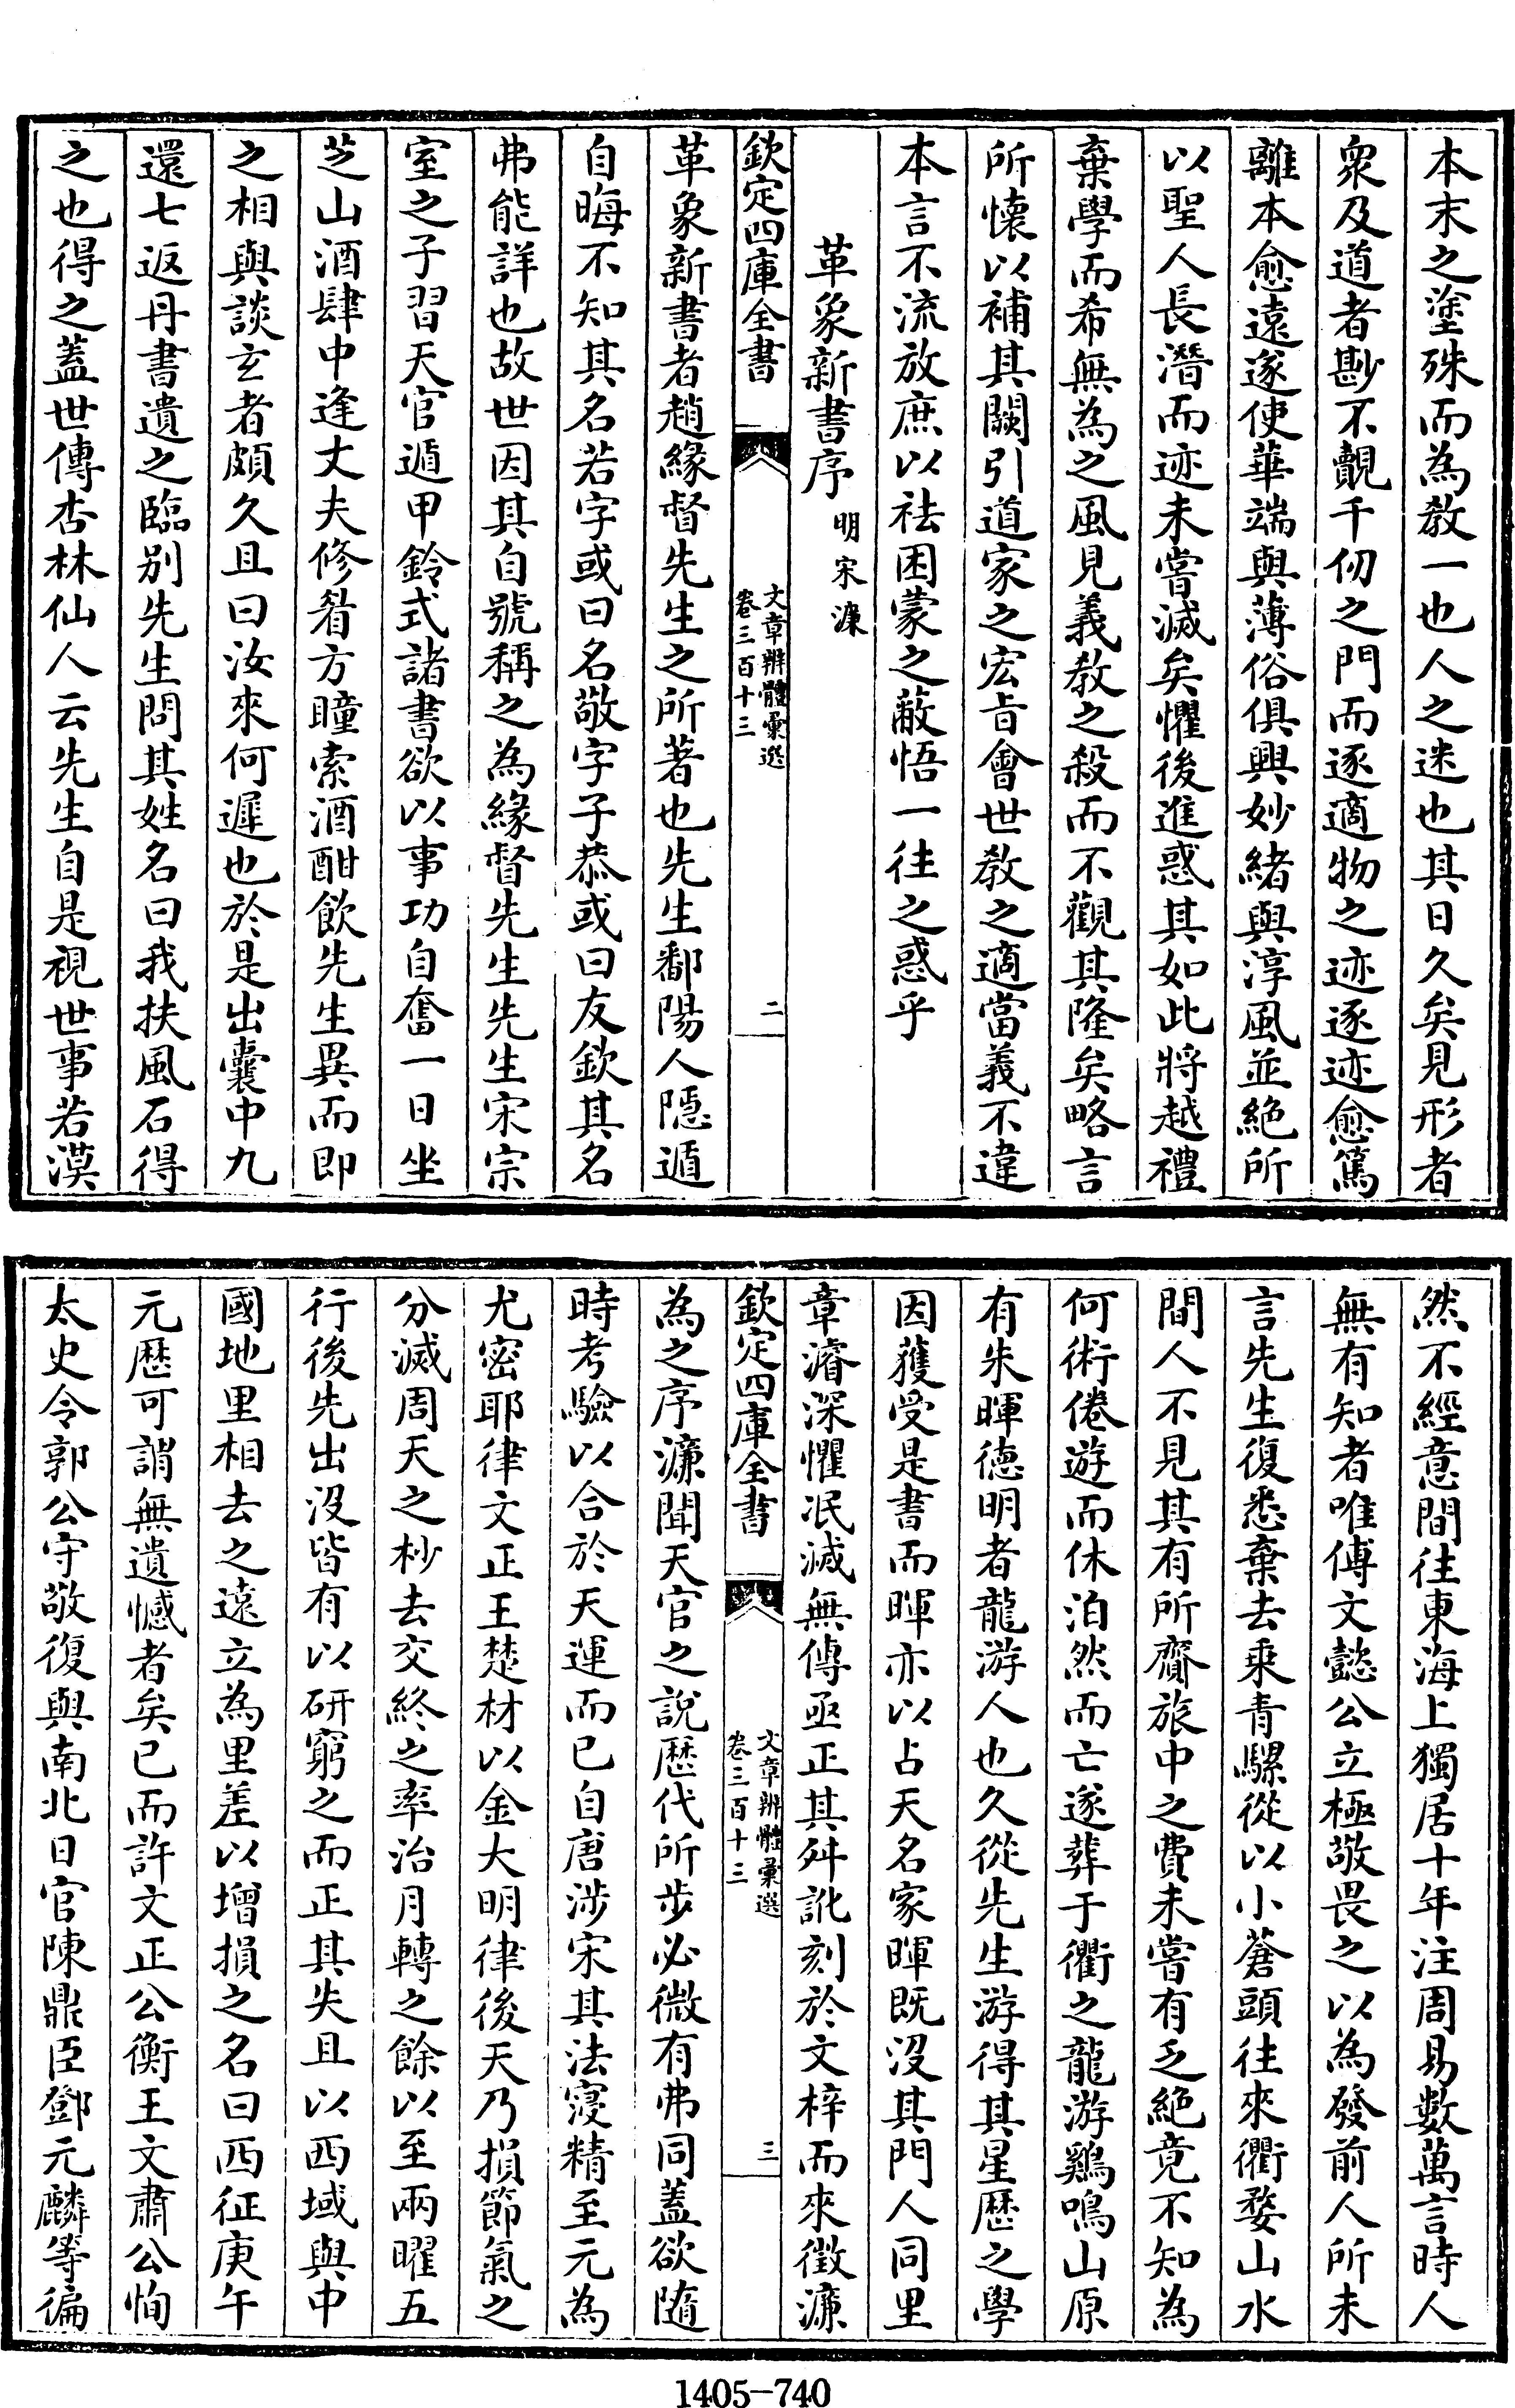 本末之塗殊而為教一也人之迷也其日久矣見形者
衆及道者尠不覿千仞之門而逐適物之迹逐迹愈篤
離本愈遠遂使華端與薄俗俱興妙緒與淳風並絶所
以聖人長潛而迹未嘗滅矣懼後進惑其如此將越禮
棄學而希無為之風見義教之殺而不觀其隆矣略言
所懷以補其闕引道家之宏旨會世教之適當義不違
本言不流放庶以祛困蒙之蔽悟一往之惑乎
革象新書序 明宋濂
欽定四庫全書
文章辨體彙選
卷三百十三
二
革象新書者趙緣督先生之所著也先生鄱陽人隱遁
自晦不知其名若字或曰名敬字子恭或曰友欽其名
弗能詳也故世因其自號稱之為緣督先生先生宋宗
室之子習天官遁甲鈐式諸書欲以事功自奮一日坐
芝山酒肆中逢丈夫修眉方瞳索酒酣飲先生異而即
之相與談玄者頗久且曰汝來何遲也於是出囊中九
還七返丹書遺之臨别先生問其姓名曰我扶風石得
之也得之蓋世傳杏林仙人云先生自是視世事若漠
然不經意間往東海上獨居十年注周易數萬言時人
無有知者唯傅文懿公立極敬畏之以為發前人所未
言先生復悉棄去乘青騾從以小蒼頭往來衢婺山水
間人不見其有所齎旅中之費未嘗有乏絶竟不知為
何術倦遊而休泊然而亡遂葬于衢之龍游鷄鳴山原
有朱暉德明者龍游人也久從先生游得其星歷之學
因獲受是書而暉亦以占天名家暉既沒其門人同里
章濬深懼泯滅無傳亟正其舛訛刻於文梓而來徵濂
欽定四庫全書
文章辨體彙選
卷三百十三
三
為之序濂聞天官之說歷代所步必微有弗同蓋欲随
時考驗以合於天運而已自唐涉宋其法寖精至元為
尤密耶律文正王楚材以金大明律後天乃損節氣之
分減周天之杪去交終之率治月轉之餘以至兩曜五
行後先出沒皆有以研窮之而正其失且以西域與中
國地里相去之遠立為里差以增損之名曰西征庚午
元歷可謂無遺憾者矣已而許文正公衡王文肅公恂
太史令郭公守敬復與南北日官陳鼎臣鄧元麟等徧
1405-740